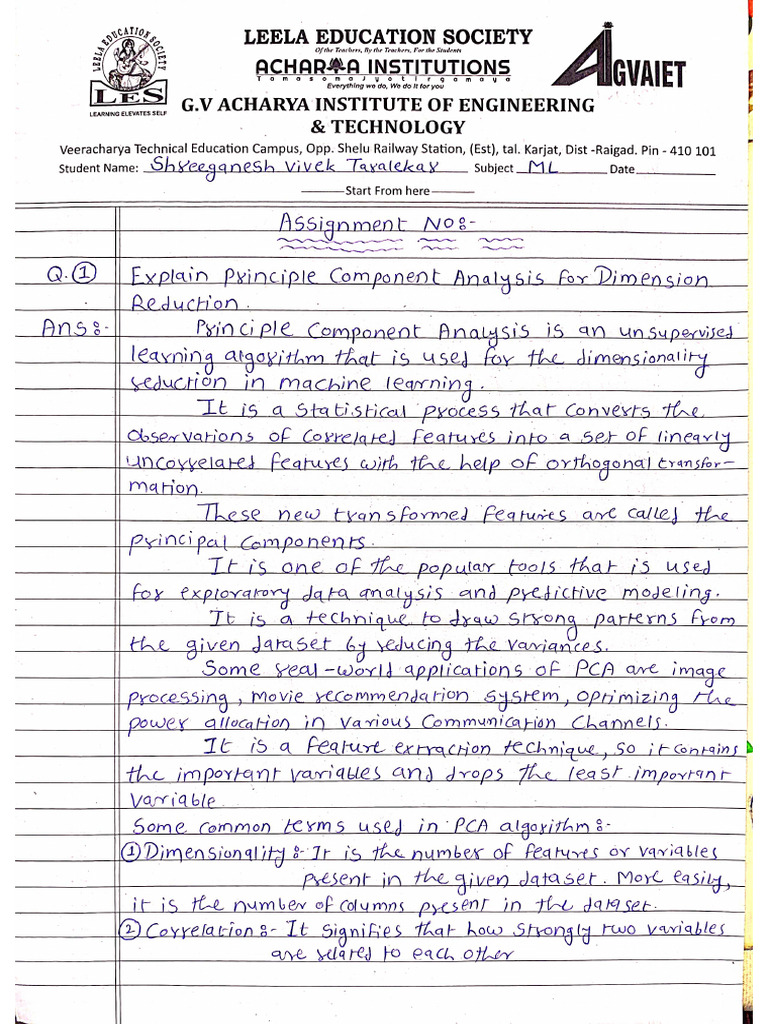 LEELA EDUCATION SOCIETY
LES
LEARNING ELEVATES SELF
LEELA EDUCATION SOCIETY
Of the Teachers, By the Teachers, For the Students
ACHARYA INSTITUTIONS
Tamasomajyotirgamaya
Everything we do, We do It for you
GVAIET
G.V ACHARYA INSTITUTE OF ENGINEERING
& TECHNOLOGY
Veeracharya Technical Education Campus, Opp. Shelu Railway Station, (Est), tal. Karjat, Dist -Raigad. Pin - 410 101
Student Name: Shreeganesh Vivek Taralekar Subject ML Date
Start From here
Assignment No:-
Q.① Explain Principle Component Analysis for Dimension
Reduction.
Ans:- Principle Component Analysis is an unsupervised
learning algorithm that is used for the dimensionality
reduction in machine learning.
It is a statistical process that converts the
observations of correlated features into a set of linearly
uncorrelated features with the help of orthogonal transfor-
mation.
These new transformed features are called the
principal components.
It is one of the popular tools that is used
for exploratory data analysis and predictive modeling.
It is a technique to draw strong patterns from
the given dataset by reducing the variances.
Some real-world applications of PCA are image
processing, movie recommendation system, optimizing the
power allocation in various communication channels.
It is a feature extraction technique, so it contains
the important variables and drops the least important
variable.
Some common terms used in PCA algorithm:-
① Dimensionality:- It is the number of features or variables
present in the given dataset. More easily,
it is the number of columns present in the dataset.
② Correlation:- It signifies that how strongly two variables
are related to each other